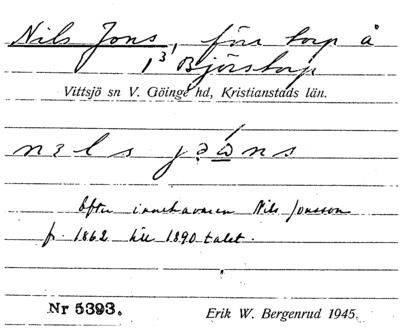 Nils Jons, förr torp å
1/3 Björstorp
Vittsjö sn V. Göinge hd, Kristianstads län.
nɜls jəɷ́ns
Efter innehavaren Nils Jonsson
f. 1862 till 1890 talet.
Nr 5393.
Erik W. Bergenrud 1945.